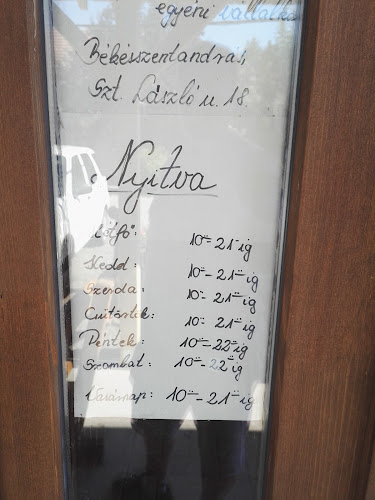 egyéni vállalkozó
Békésszentandrás,
Szt. László u. 18.
Nyitva
Hétfő: 10⁰⁰- 21⁰⁰ ig
Kedd: 10⁰⁰- 21⁰⁰ ig
Szerda: 10⁰⁰- 21⁰⁰ ig
Csütörtök: 10⁰⁰- 21⁰⁰ ig
Péntek: 10⁰⁰- 22⁰⁰ ig
Szombat: 10⁰⁰- 22⁰⁰ ig
Vasárnap: 10⁰⁰- 21⁰⁰ ig